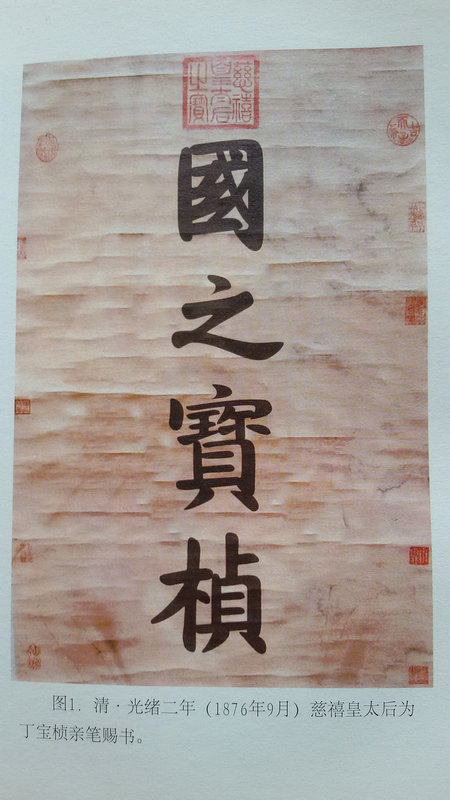 慈禧
皇太后
之寶
國之寶楨
图1. 清·光绪二年（1876年9月）慈禧皇太后为
丁宝桢亲笔赐书。